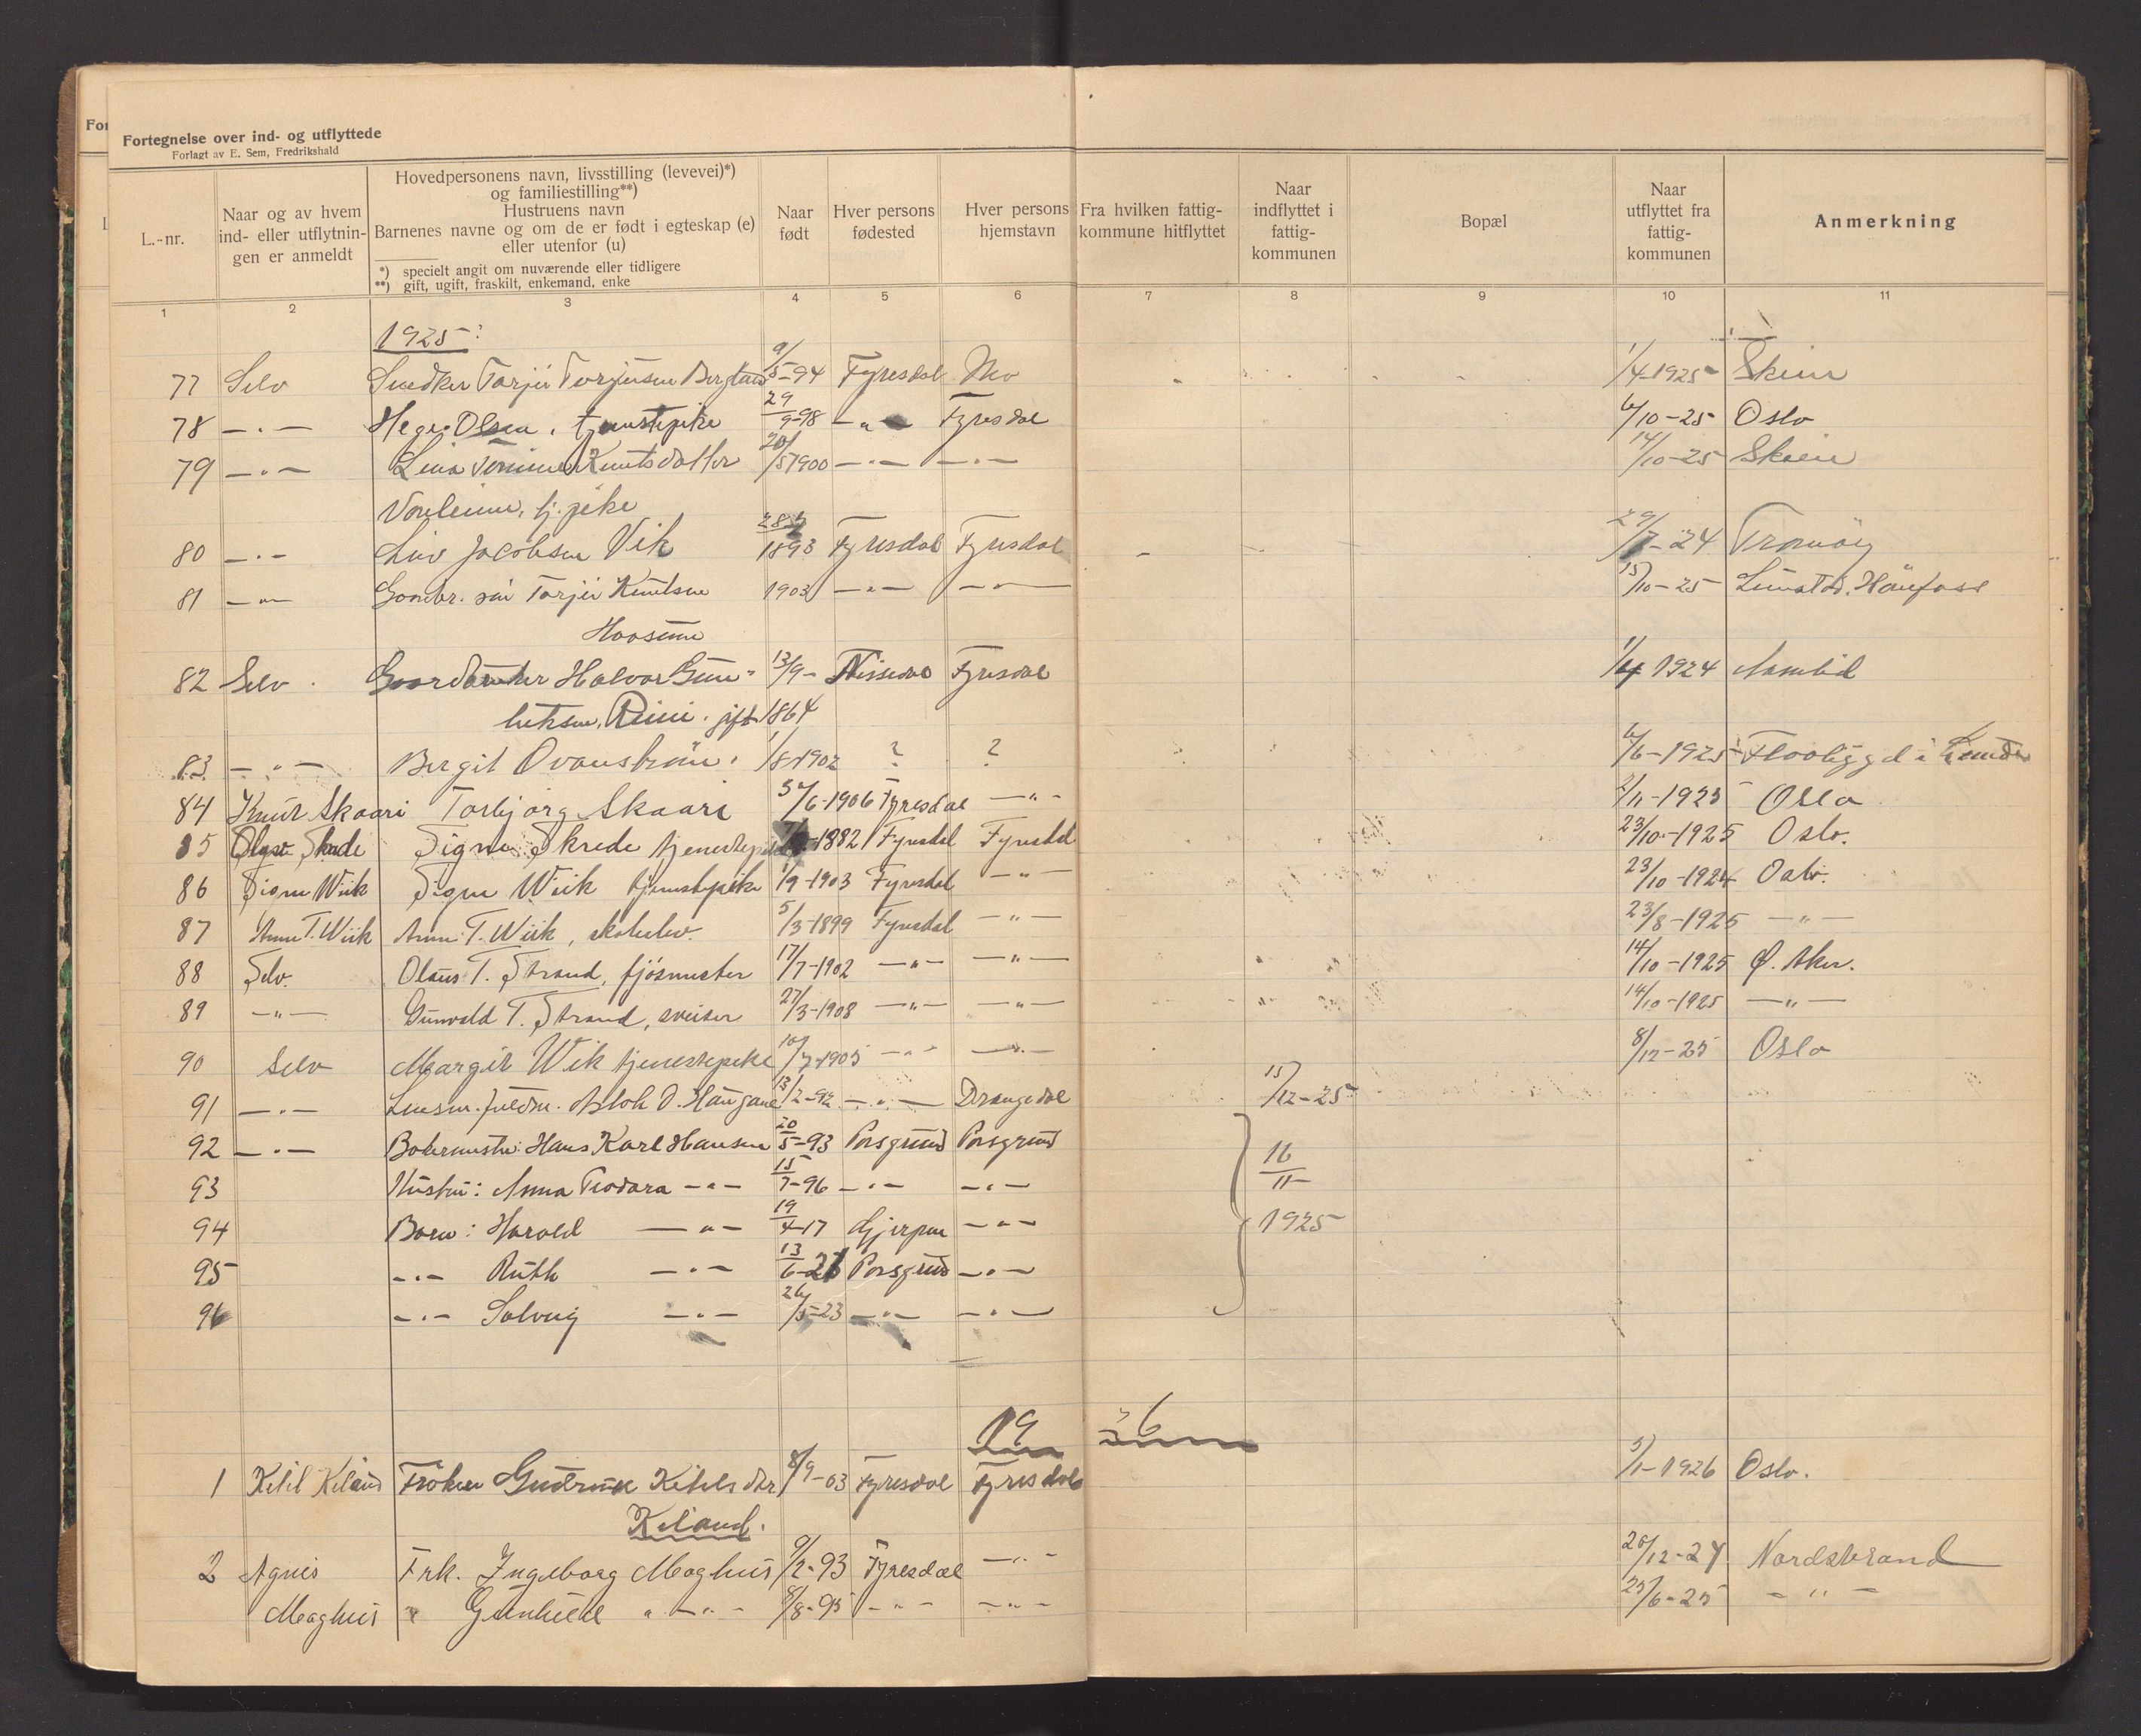 For
Fortegnelse over ind- og utflyttede
Forlagt av E. Sem, Fredrikshald
L.-nr.
Naar og av hvem ind- eller utflytnin-gen er anmeldt
Hovedpersonens navn, livsstilling (levevei)*)
og familiestilling**)
Hustruens navn
Barnenes navne og om de er født i egteskap (e)
eller utenfor (u)
*) specielt angit om nuværende eller tidligere
**) gift, ugift, fraskilt, enkemand, enke
Naar født
Hver persons fødested
Hver persons hjemstavn
Fra hvilken fattig-kommune hitflyttet
Naar indflyttet i fattig-kommunen
Bopæl
Naar utflyttet fra fattig-kommunen
Anmerkning
1 2 3 4 5 6 7 8 9 10 11
1925:
77 Selv Snedker Tarjei Terjusen 9/5-94 Fyresdal Mo 1/4-1925 Skien
78 -"- Hege Olsen, tjenestepike 29/9-98 -"- Fyresdal 6/10-25 Oslo
79 -"- Lina Knutsdatter 20/5 1900 -"- -"- 14/10-25 Skien
Vonleinn, tj.pike
80 -"- Liv Jacobsen Vik 1893 Fyresdal Fyresdal 29/7-24 Tromöy
81 -"- Gaardbr. søn Tarjei Knutsen 1903 -"- -"- 15/10-25 Hönefoss
82 Selv Halvor Gun- 13/9- Nissedal Fyresdal 1/4 1924 Aamlid
leiksen, gift 1864
83 -"- Bergit 1/8-1902 ? ? 6/6-1925
84 Knut Skaari Torbjørg Skaari 5/6-1906 Fyresdal -"- 2/11-1925 Oslo
85 Olga Skrede Signe Skrede 1882 Fyresdal Fyresdal 23/10-1925 Oslo.
86 Signe Wiik Signe Wiik tjenestepike 1/9-1903 Fyresdal -"- 23/10-1924 Oslo.
87 Anne T. Wiik Anne T. Wiik, 5/3-1899 Fyresdal -"- 23/8-1925 -"-
88 Selv. Olaus T. Strand, fjösmester 17/7-1902 -"- -"- 14/10-1925 Ø. Aker.
89 -"- Gunvald T. Strand, sveiser 27/3-1908 -"- -"- 14/10-1925 -"-
90 Selv Margit Wik tjenestepike 10/7-1905 -"- -"- 8/12-25 Oslo
91 -"- Lensm.fuldm. Aslak O. Haugane 13/2-92 -"- Drangedal 15/12-25
92 -"- Bakermester: Hans Karl Hansen 20/5-93 Porsgrund Porsgrund 16/11-
93 Hustru: Anna Teodora -"- 15/7-96 -"- -"-
94 Barn: Harald -"- 19/4-17 Gjerpen -"- 1925
95 -"- Ruth -"- 13/6-21 Porsgrund -"-
96 -"- Solveig -"- 26/5-23 -"- -"-
19 26
1 Ketil Kiland Frøken Gudrun Ketilsdtr 8/9-03 Fyresdal Fyresdal 5/1-1926 Oslo.
Kiland.
2 Agnes Frk. Ingeborg Moghus 9/2-93 Fyresdal -"- 20/12-24 Nordstrand
Moghus " Gunhild " -"- 8/8-95 -"- -"- 25/6-25 -"-